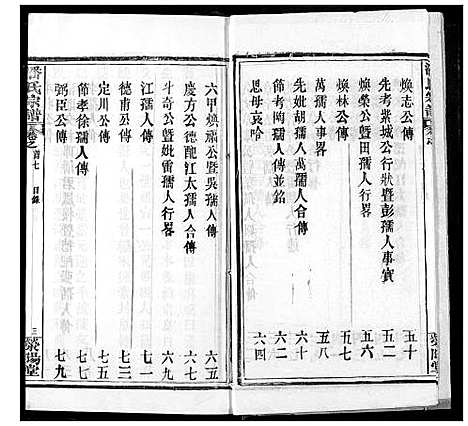 煥志公傳 五十
先考紫城公行狀暨彭孺人事實 五一
煥榮公暨田孺人行略 五二
煥林公傳 五七
萬孺人傳 五八
先妣胡孺人萬孺人合傳 六十
節考陶孺人傳並銘 六二
思母哀哈 六四
六甲煥肅公暨吳孺人傳 六五
慶方公德配江太孺人合傳 六七
斗奇公暨妣雷孺人行畧 六九
江孺人傳 七一
德甫公傳 七二
定川公傳 七五
節孝徐孺人傳 七七
弼臣公傳 七九
潘氏宗譜 卷之首七 目錄 三 滎陽堂